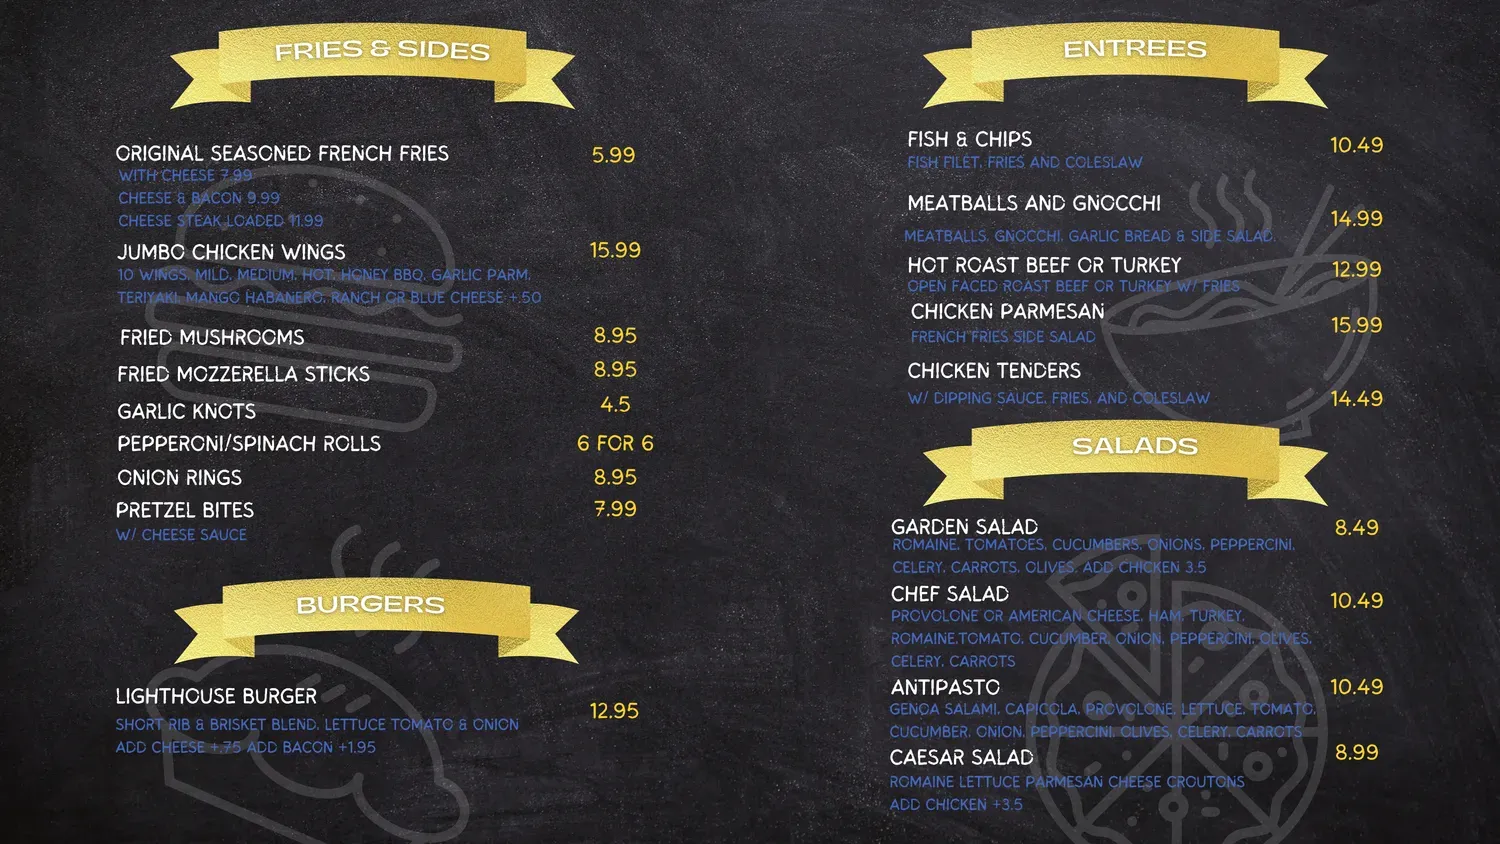 FRIES & SIDES
ORIGINAL SEASONED FRENCH FRIES 5.99
WITH CHEESE 7.99
CHEESE & BACON 9.99
CHEESE STEAK LOADED 11.99
JUMBO CHICKEN WINGS 15.99
10 WINGS, MILD, MEDIUM, HOT, HONEY BBQ, GARLIC PARM,
TERIYAKI, MANGO HABANERO, RANCH OR BLUE CHEESE +.50
FRIED MUSHROOMS 8.95
FRIED MOZZERELLA STICKS 8.95
GARLIC KNOTS 4.5
PEPPERONI/SPINACH ROLLS 6 FOR 6
ONION RINGS 8.95
PRETZEL BITES 7.99
W/ CHEESE SAUCE
BURGERS
LIGHTHOUSE BURGER 12.95
SHORT RIB & BRISKET BLEND, LETTUCE TOMATO & ONION
ADD CHEESE +.75 ADD BACON +1.95
ENTREES
FISH & CHIPS 10.49
FISH FILET, FRIES AND COLESLAW
MEATBALLS AND GNOCCHI 14.99
MEATBALLS, GNOCCHI, GARLIC BREAD & SIDE SALAD,
HOT ROAST BEEF OR TURKEY 12.99
OPEN FACED ROAST BEEF OR TURKEY W/ FRIES
CHICKEN PARMESAN 15.99
FRENCH FRIES SIDE SALAD
CHICKEN TENDERS
W/ DIPPING SAUCE, FRIES, AND COLESLAW 14.49
SALADS
GARDEN SALAD 8.49
ROMAINE, TOMATOES, CUCUMBERS, ONIONS, PEPPERCINI,
CELERY, CARROTS, OLIVES, ADD CHICKEN 3.5
CHEF SALAD 10.49
PROVOLONE OR AMERICAN CHEESE, HAM, TURKEY,
ROMAINE,TOMATO, CUCUMBER, ONION, PEPPERCINI, OLIVES,
CELERY, CARROTS
ANTIPASTO 10.49
GENOA SALAMI, CAPICOLA, PROVOLONE, LETTUCE, TOMATO,
CUCUMBER, ONION, PEPPERCINI, OLIVES, CELERY, CARROTS
CAESAR SALAD 8.99
ROMAINE LETTUCE PARMESAN CHEESE CROUTONS
ADD CHICKEN +3.5